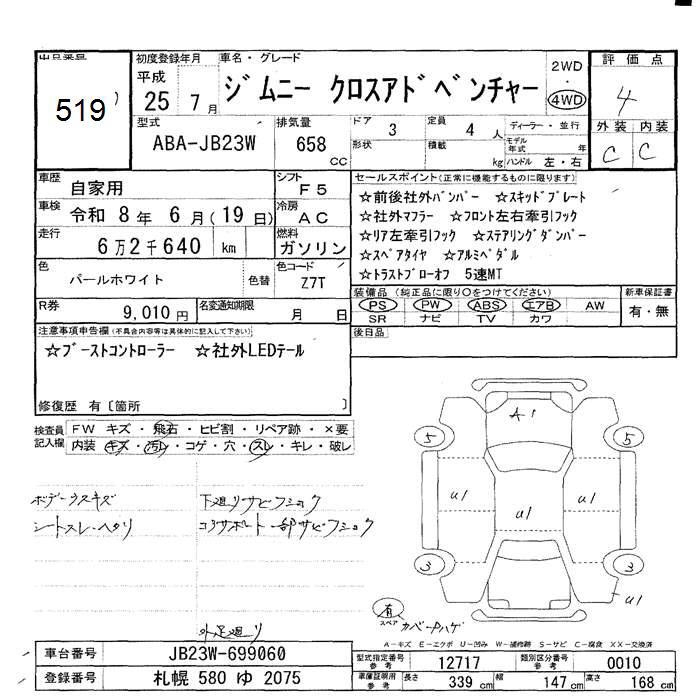 出品番号 初度登録年月 車名・グレード 2WD 評価点
519 平成 25 7月 ジムニー クロスアドベンチャー ・ 4WD 4
型式 排気量 ドア 3 定員 4人 ディーラー・並行 外装 内装
ABA-JB23W 658 cc 形状 積載 kg モデル年式 年 ハンドル 左・右 C C
車歴 自家用 シフト F5 セールスポイント(正常に機能するものに限ります)
車検 令和 8年 6月(19日) 冷房 AC ☆前後社外バンパー ☆スキッドプレート
☆社外マフラー ☆フロント左右牽引フック
走行 6万2千640 km 燃料 ガソリン ☆リア左牽引フック ☆ステアリングダンパー
☆スペアタイヤ ☆アルミペダル
色 パールホワイト 色替 色コード Z7T ☆トラストブローオフ 5速MT
R券 9,010円 名変通知期限 月 日 装備品(純正品に限り○をつけてください) 新車保証書
PS PW ABS エアB AW 有・無
SR ナビ TV カワ
注意事項申告欄(不具合内容等は具体的に記入して下さい) 後日品
☆ブーストコントローラー ☆社外LEDテール
修復歴 有〔箇所 〕
検査員記入欄 FW キズ・飛石・ヒビ割・リペア跡・×要
内装 キズ・汚レ・コゲ・穴・スレ・キレ・破レ
A1
5 5
U1 U1 U1
3 3
U1
ボデーウスキズ 下廻りサビフショク
シートスレ・ヘタリ コアサポート一部サビフショク
有 スペア カバーハゲ
外足廻り
A-キズ E-エクボ U-凹み W-補修跡 S-サビ C-腐食 XX-交換済
車台番号 JB23W-699060 型式指定番号 参考 12717 類別区分番号 参考 0010
登録番号 札幌 580 ゆ 2075 車庫証明用 参考 長さ 339 cm 幅 147 cm 高さ 168 cm